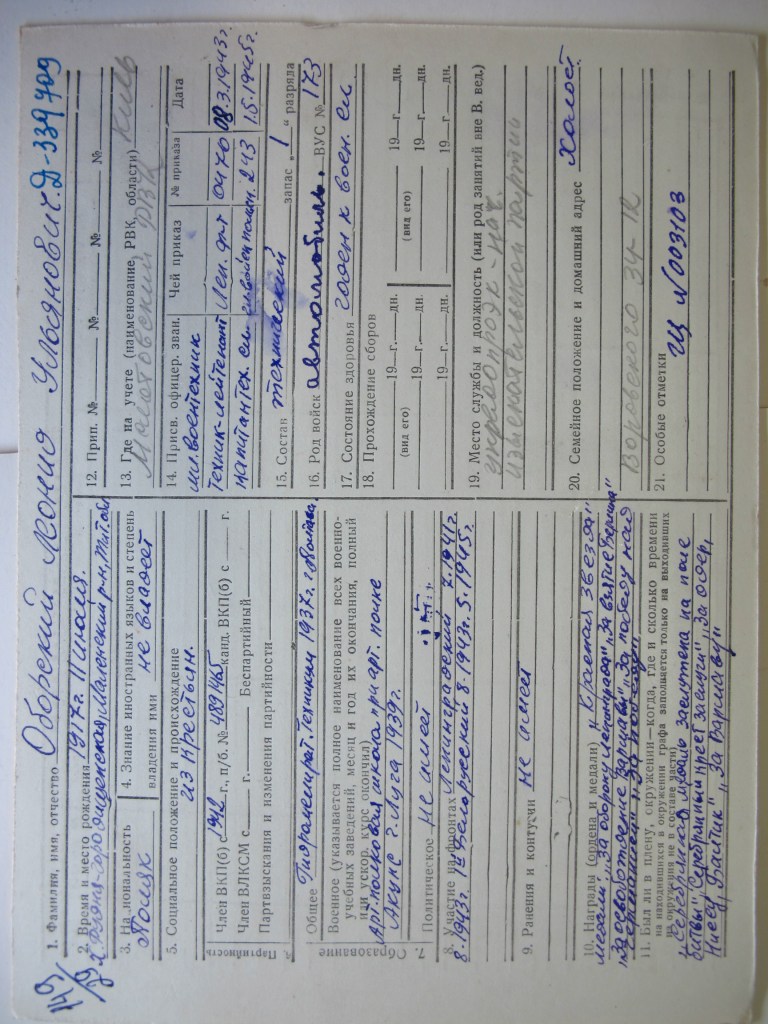 149
1. Фамилия, имя, отчество Оборский Леонид Ульянович. Д-339709
2. Время и место рождения 1917 г. 11 июля.
3. Национальность
Поляк
4. Знание иностранных языков и степень
владения ими не владеет
5. Социальное положение и происхождение
из крестьян.
6. Партийность
Член ВКП(б) с 1942 г., п/б. № 4891465 канд. ВКП(б) с — г.
Член ВЛКСМ с — г. — Беспартийный
Партвзыскания и изменения партийности
7. Образование
Общее Гидромелиорат. Техникум 1937 г.
Военное (указывается полное наименование всех военно-
учебных заведений, месяц и год их окончания, полный
или ускор. курс окончил)
Арт. полковая школа при арт. полке
г. Луга 1939 г.
Политическое не имеет
8. Участие на фронтах Ленинградский 7.1941 г.
8.1943 г. 1й Белорусский 8.1943 г. 5.1945 г.
9. Ранения и контузии не имеет
10. Награды (ордена и медали) „Красная звезда"
медали: „За оборону Ленинграда", „За взятие Берлина"
„За освобождение Варшавы", „За победу над
Германией"
11. Был ли в плену, окружении—когда, где и сколько времени
на находившихся в окружении графа заполняется только на выходивших
из окружения не в составе части)
„Серебряная медаль заслужена на поле
битвы", Серебряный крест заслуги", „За Одер,
Нису, Балтик", „За Варшаву"
12. Прип. № № № №
13. Где на учете (наименование РВК, области) Киев
Молотовский РВК
14. Присв. офицер. зван. Чей приказ № приказа Дата
мл. воентехник
Техник-лейтенант Лен. фр-т 0470 08.3.1943 г.
капитан тех. сл. 243 1.5.1945 г.
15. Состав технический запас „1" разряда
16. Род войск автомобильн. ВУС № 173
17. Состояние здоровья годен к воен. сл.
18. Прохождение сборов
19—г.—дн. 19—г.—дн.
(вид его) (вид его)
19—г.—дн. 19—г.—дн.
19—г.—дн. 19—г.—дн.
19. Место службы и должность (или род занятий вне В. вед.)
нач.
изыскательской партии
20. Семейное положение и домашний адрес холост
Воровского 34-12
21. Особые отметки
ГЩ №003103